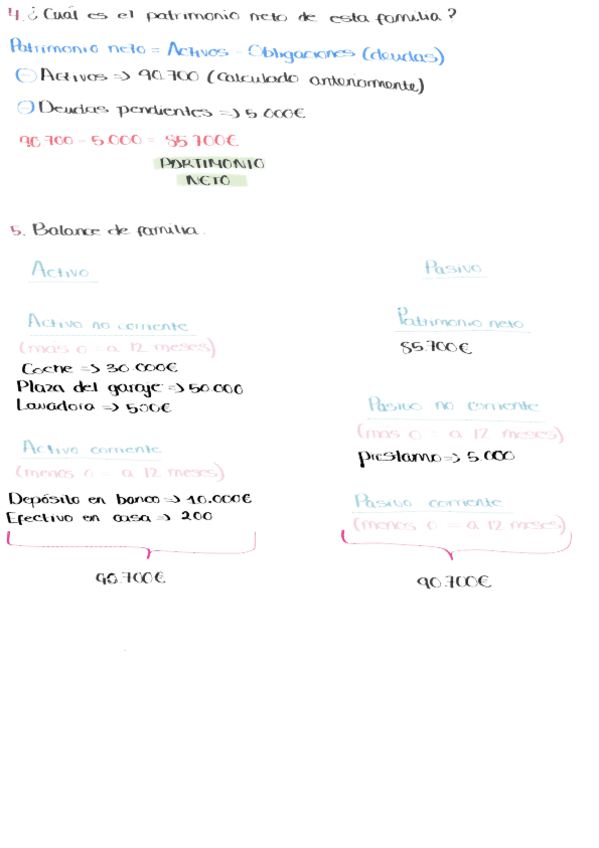 4. ¿Cuál es el patrimonio neto de esta familia?
Patrimonio neto = Activos - Obligaciones (deudas)
Activos => 90.700 (calculado anteriormente)
Deudas pendientes => 5.000€
90.700 - 5.000 = 85.700€
PORTIMONIO
NETO
5. Balance de familia.
Activo
Pasivo
Activo no corriente
(más o = a 12 meses)
Coche => 30.000€
Plaza del garaje => 50.000
Lavadora => 500€
Activo corriente
(menos o = a 12 meses)
Depósito en banco => 10.000€
Efectivo en casa => 200
90.700€
Patrimonio neto
85.700€
Pasivo no corriente
(más o = a 12 meses)
préstamo => 5.000
Pasivo corriente
(menos o = a 12 meses)
90.700€